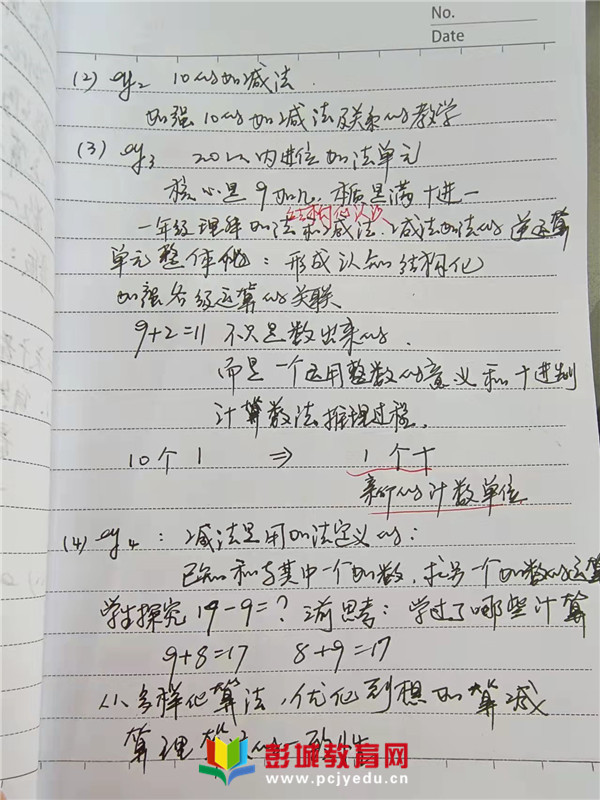 No.
Date
(2) eg2 10的加减法.
加强10的加减法联系的教学
(3) eg3 20以内进位加法单元
核心是9加几, 本质是满十进一
结构化认识
一年级理解加法和减法、减法加法的逆运算
单元整体化: 形成认知结构化
加强各级运算的关联
9+2=11 不只是数出来的.
而是一个运用整数的意义和十进制
计算数法推理过程.
10个1 ⇒ 1个十
新的计数单位
(4) eg4: 减法是用加法定义的:
已知和与其中一个加数, 求另一个加数的运算
学生探究 17-9=? 前思考: 学过了哪些计算
9+8=17 8+9=17
从多样化算法, 优化到想加算减
算理算法的一致性
彭城教育网
www.pcjyedu.cn